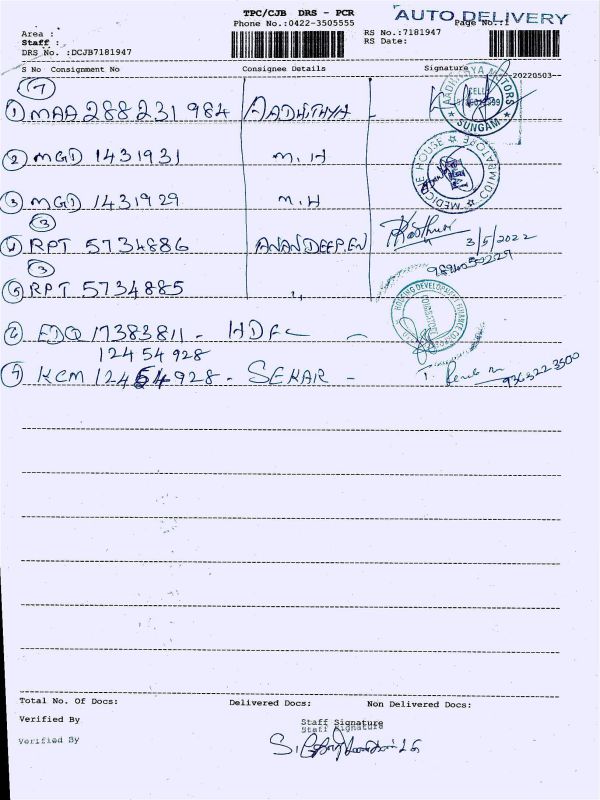 TPC/CJB DRS - PCR
AUTO DELIVERY
Phone No.:0422-3505555
Page No.:1
Area :
RS No.:7181947
Staff :
RS Date:
DRS No. :DCJB7181947
S No Consignment No Consignee Details Signature
20220503
(7)
1 MAA 288231984 AADHITHYA
AADHITHYA MOTORS
CELL
* SUNGAM *
2 MGD 1431931 M.H
MEDICINE HOUSE * COIMBATORE *
3 MGD 1431929 M.H
(3)
4 RPT 5734886 ANANDEEP.EN
3/5/2022
(3)
5 RPT 5734885 "
HOUSING DEVELOPMENT FINANCE CORPO
6 EDQ 17383811 - HDFC -
12454928
7 KCM 12454928 - SEKAR -
Total No. Of Docs: Delivered Docs: Non Delivered Docs:
Verified By Staff Signature
Verified By Staff Signature